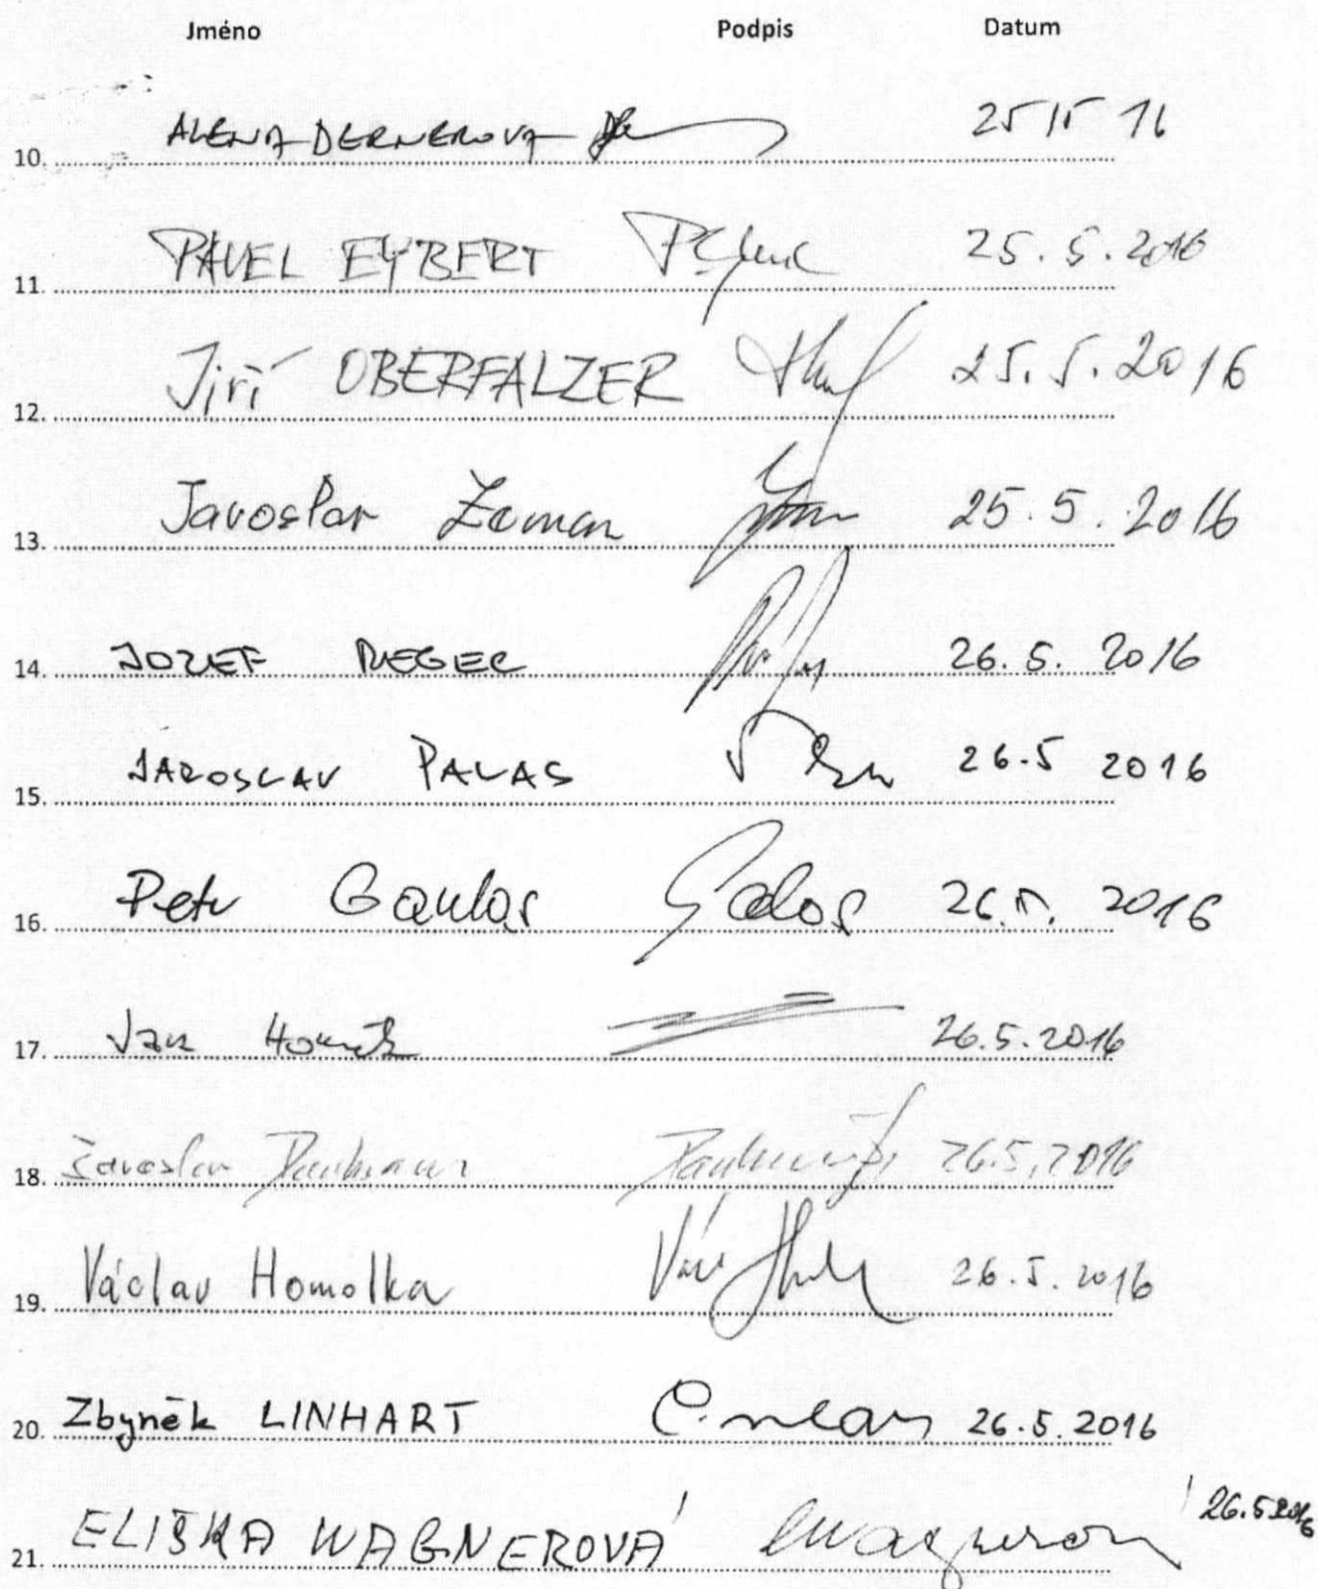 Jméno Podpis Datum
10. ALENA DERNEROVA 25/5 16
11. PAVEL EYBERT 25.5.2016
12. Jiří OBERFALZER 25.5.2016
13. Jaroslav Zeman 25.5.2016
14. JOZEF REGEC 26.5.2016
15. JAROSLAV PALAS 26.5 2016
16. Petr Gawlas Galos 26.5. 2016
17. Jan Horník 26.5.2016
18. Jaroslav 26.5.2016
19. Václav Homolka 26.5.2016
20. Zbyněk LINHART 26.5.2016
21. ELIŠKA WAGNEROVÁ 26.5.2016